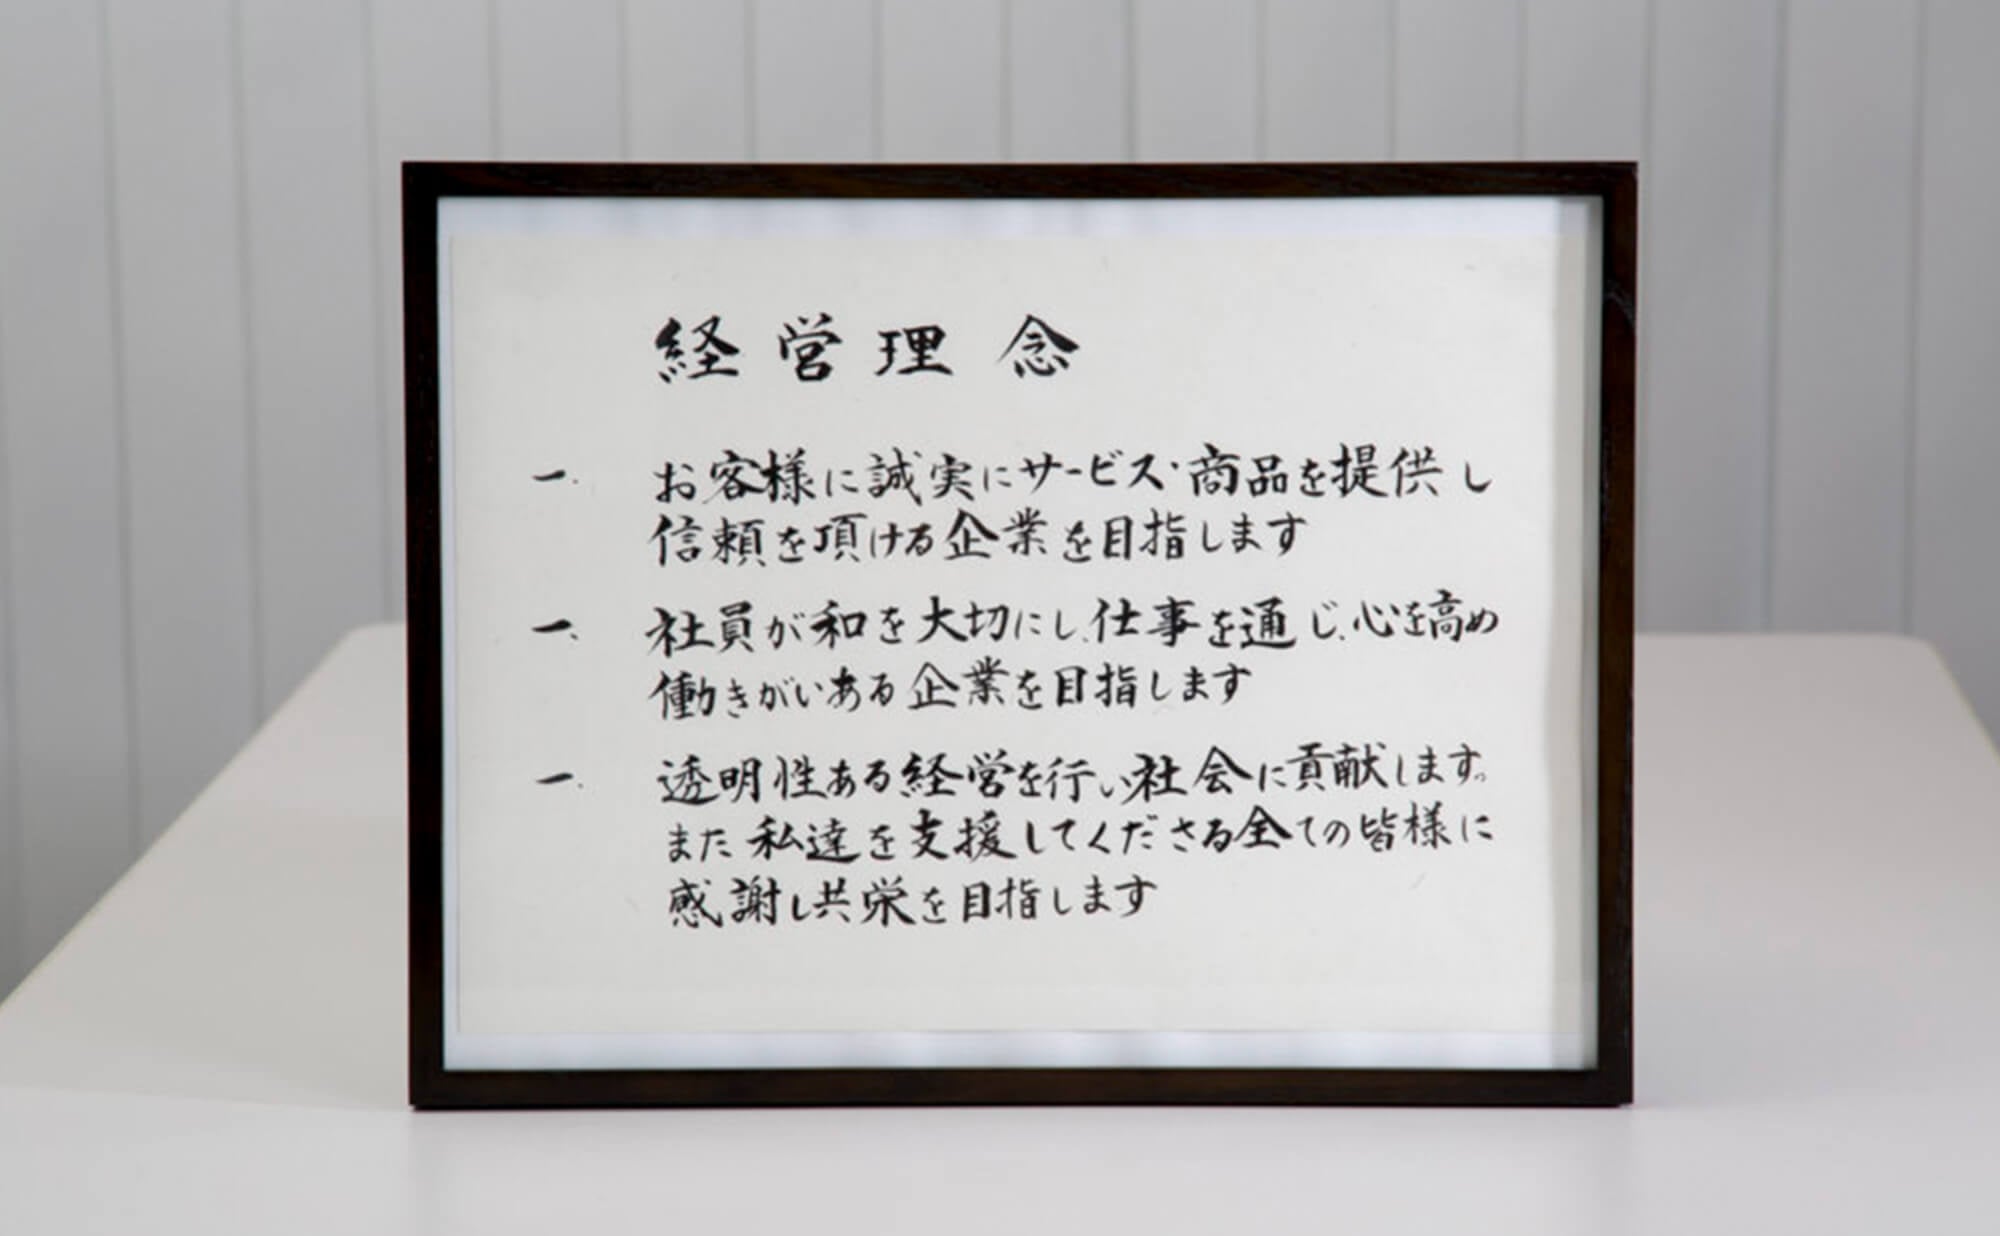 経営理念
一、お客様に誠実にサービス・商品を提供し
信頼を頂ける企業を目指します
一、社員が和を大切にし、仕事を通じ、心を高め
働きがいある企業を目指します
一、透明性ある経営を行い社会に貢献します。
また私達を支援してくださる全ての皆様に
感謝し共栄を目指します